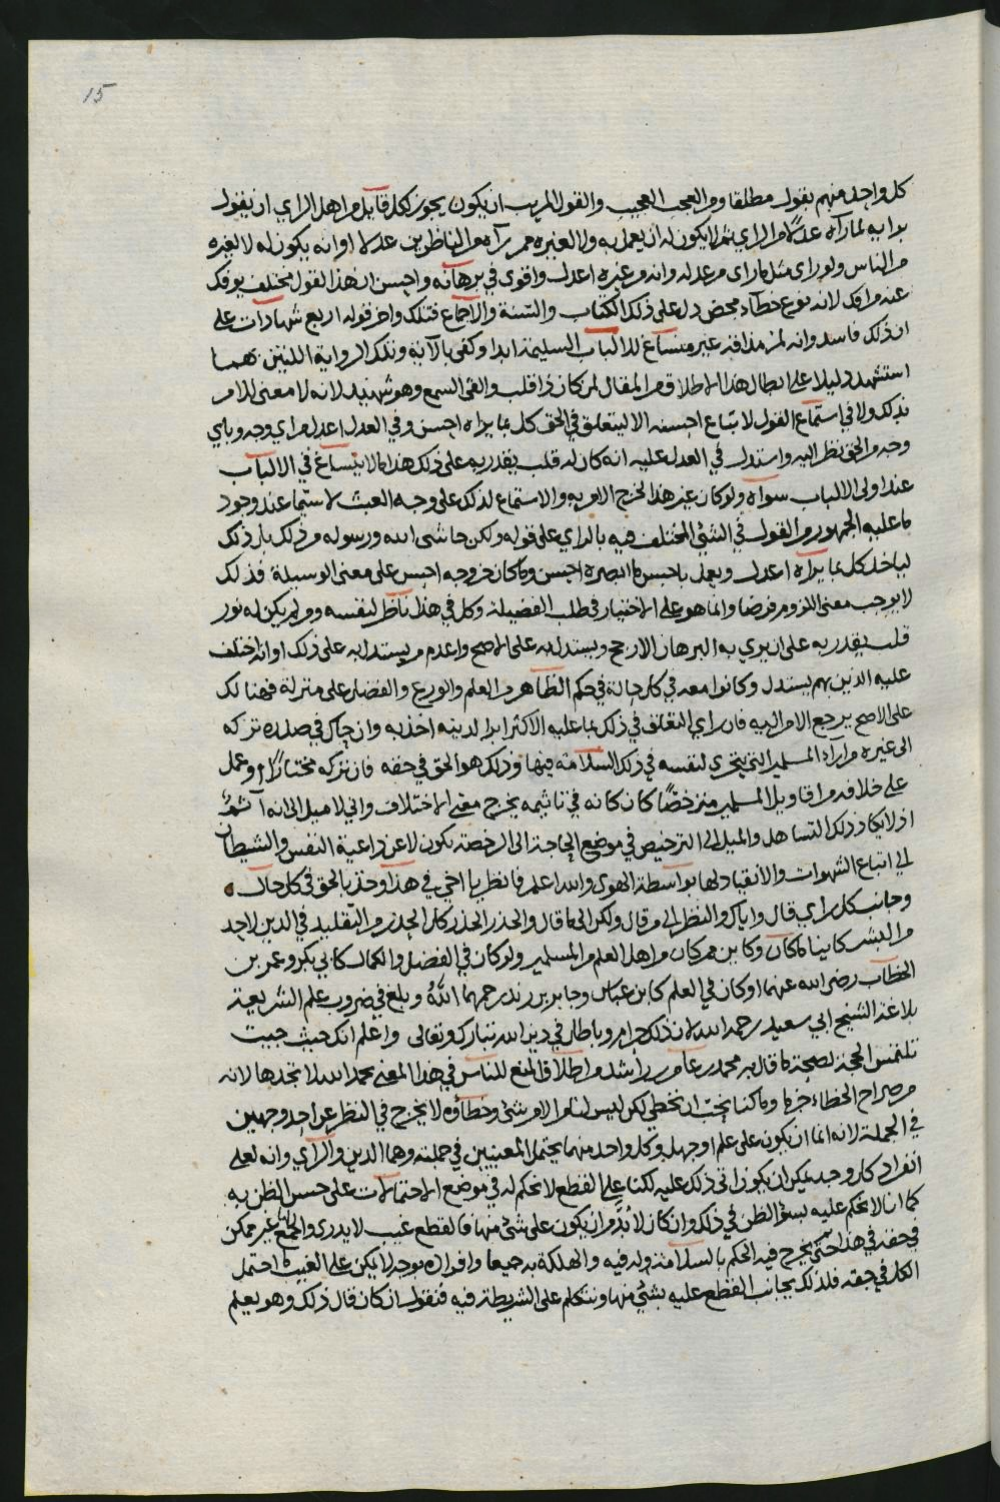 15
كل واحد منهم بقول مطلقا ومن العجب العجيب والقول المريب ان يكون يجوز لكل قايل من اهل الراي ان يقول
برايه لما رآه عدلا من الراي ثم لا يكون له ان يعمل به ولا لغيره ممن رآه من الناظرين عدلا او انه يكون له لا لغيره
من الناس ولو راى مثل ما راى من عدله وانه من غيره اعدل واقوى في برهانه واحسن ان هذا القول مختلف يوفك
عنه من افك لانه نوع خطآء محض دل على ذلك الكتاب والسنة والاجماع فتلك واخر قوله اربع شهادات على
ان ذلك فاسد وانه لمن مذاقه غير منساغ للالباب السليمة ابدا وكفى بالآية وتلك الرواية اللتين بهما
استشهد دليلا على ابطال هذا الاطلاق من المقال لمن كان ذا قلب والقى السمع وهو شهيد لانه لا معنى للامر
بذلك ولا في استماع القول لاتباع احسنه الا ليتعلق في الحق كل بما يراه احسن وفي العدل اعدل من اي وجه وباي
وجه من الحق نظر اليه واستدل في العدل عليه انه كان له قلب يقدر به على ذلك هذا ما لا ينساغ في الالباب
عند اولى الالباب سواه ولو كان غير هذا لخرج الامر به والاستماع لذلك على وجه العبث لا سيما عند وجود
ما عليه الجمهور من القول في الشئ المختلف فيه بالراي على قوله ولكن حاشى الله ورسوله من ذلك بل ذلك
لياخذ كل بما يراه اعدل ويعمل باحسن ما ابصره احسن وما كان خروجه احسن على معنى الوسيلة فذلك
لا يوجب معنى اللزوم فرضا وانما هو على الاختيار في طلب الفضيلة وكل في هذا ناظر لنفسه ومن لم يكن له نور
قلب يقدر به على ان يري به البرهان الارجح ويستدل به على الاصح واعدم من يستدل به على ذلك او انه اختلف
عليه الذين بهم يستدل وكانوا معه في كل حالة في حكم الظاهر من العلم والورع والفضل على منزلة فهنالك
على الاصح يرجع الامر اليه فان راى التعلق في ذلك بما عليه الاكثر ابرا لدينه اخذ به وان حاك في صدره تركه
الى غيره من ارآء المسلمين التي يتحرى لنفسه في ذلك السلامة فيها وذلك هو الحق في حقه فان تركه مختارا وعمل
على خلافه من اقاويل المسلمين مترخصا كان كانه في تاثيمه يخرج معنى الاختلاف واني لاميل الى انه آثم
اذ لا يكاد ذلك التساهل والميل الى الترخيص في موضع الحاجة الى الرخصة يكون لا عن داعية النفس والشيطان
الى اتباع الشهوات والانقياد لها بواسطة الهوى والله اعلم فانظر يا اخي في هذا وخذ بالحق في كل حال
وجانب كل راي قال واياك والنظر الى من قال ولكن الى ما قال والحذر الحذر كل الحذر من التقليد في الدين لاحد
من البشر كاينا ما كان وكاين من كان من اهل العلم من المسلمين ولو كان في الفضل والكمال كابي بكر وعمر بن
الخطاب رضى الله عنهما او كان في العلم كابن عباس وجابر بن زيد رحمهما الله وبلغ في ضروب علم الشريعة
بلاغة الشيخ ابي سعيد رحمه الله فان ذلك حرام وباطل في دين الله تبارك وتعالى واعلم انك حيث جيت
تلتمس الحجة لصحة ما قال به محمد بن عامر بن راشد من اطلاق المنع للناس في هذا المعنى بحمد الله لا تجدها لانه
من صراح الخطاء جزما وما كنا نحب ان نخطي لكن ليس لنا من الامر شئ وخطاؤه لا يخرج في النظر عن احد وجهين
في الجملة لانه اما ان يكون على علم او جهل وكل واحد منهما يحتمل المعنيين في جملته وهما الدين والراي وانه لعلى
انفراد كل وحده يمكن ان يكون اتى ذلك عليه لكنا على القطع لا نحكم له في موضع الاحتمالات على حسن الظن به
كما انا لا نحكم عليه بسوء الظن في ذلك وان كان لا بد من ان يكون على شئ منها فالقطع غيب لا يدرى والجمع لها غير ممكن
في حقه في هذا حتى يخرج فيه الحكم بالسلامة له فيه والهلكة به جميعا وافراده بوجه لا يمكن على الغيب ما احتمل
الكل في حقه فلذلك يجانب القطع عليه بشئ منها ونتكلم على الشريطة فيه فنقول ان كان قال ذلك وهو يعلم